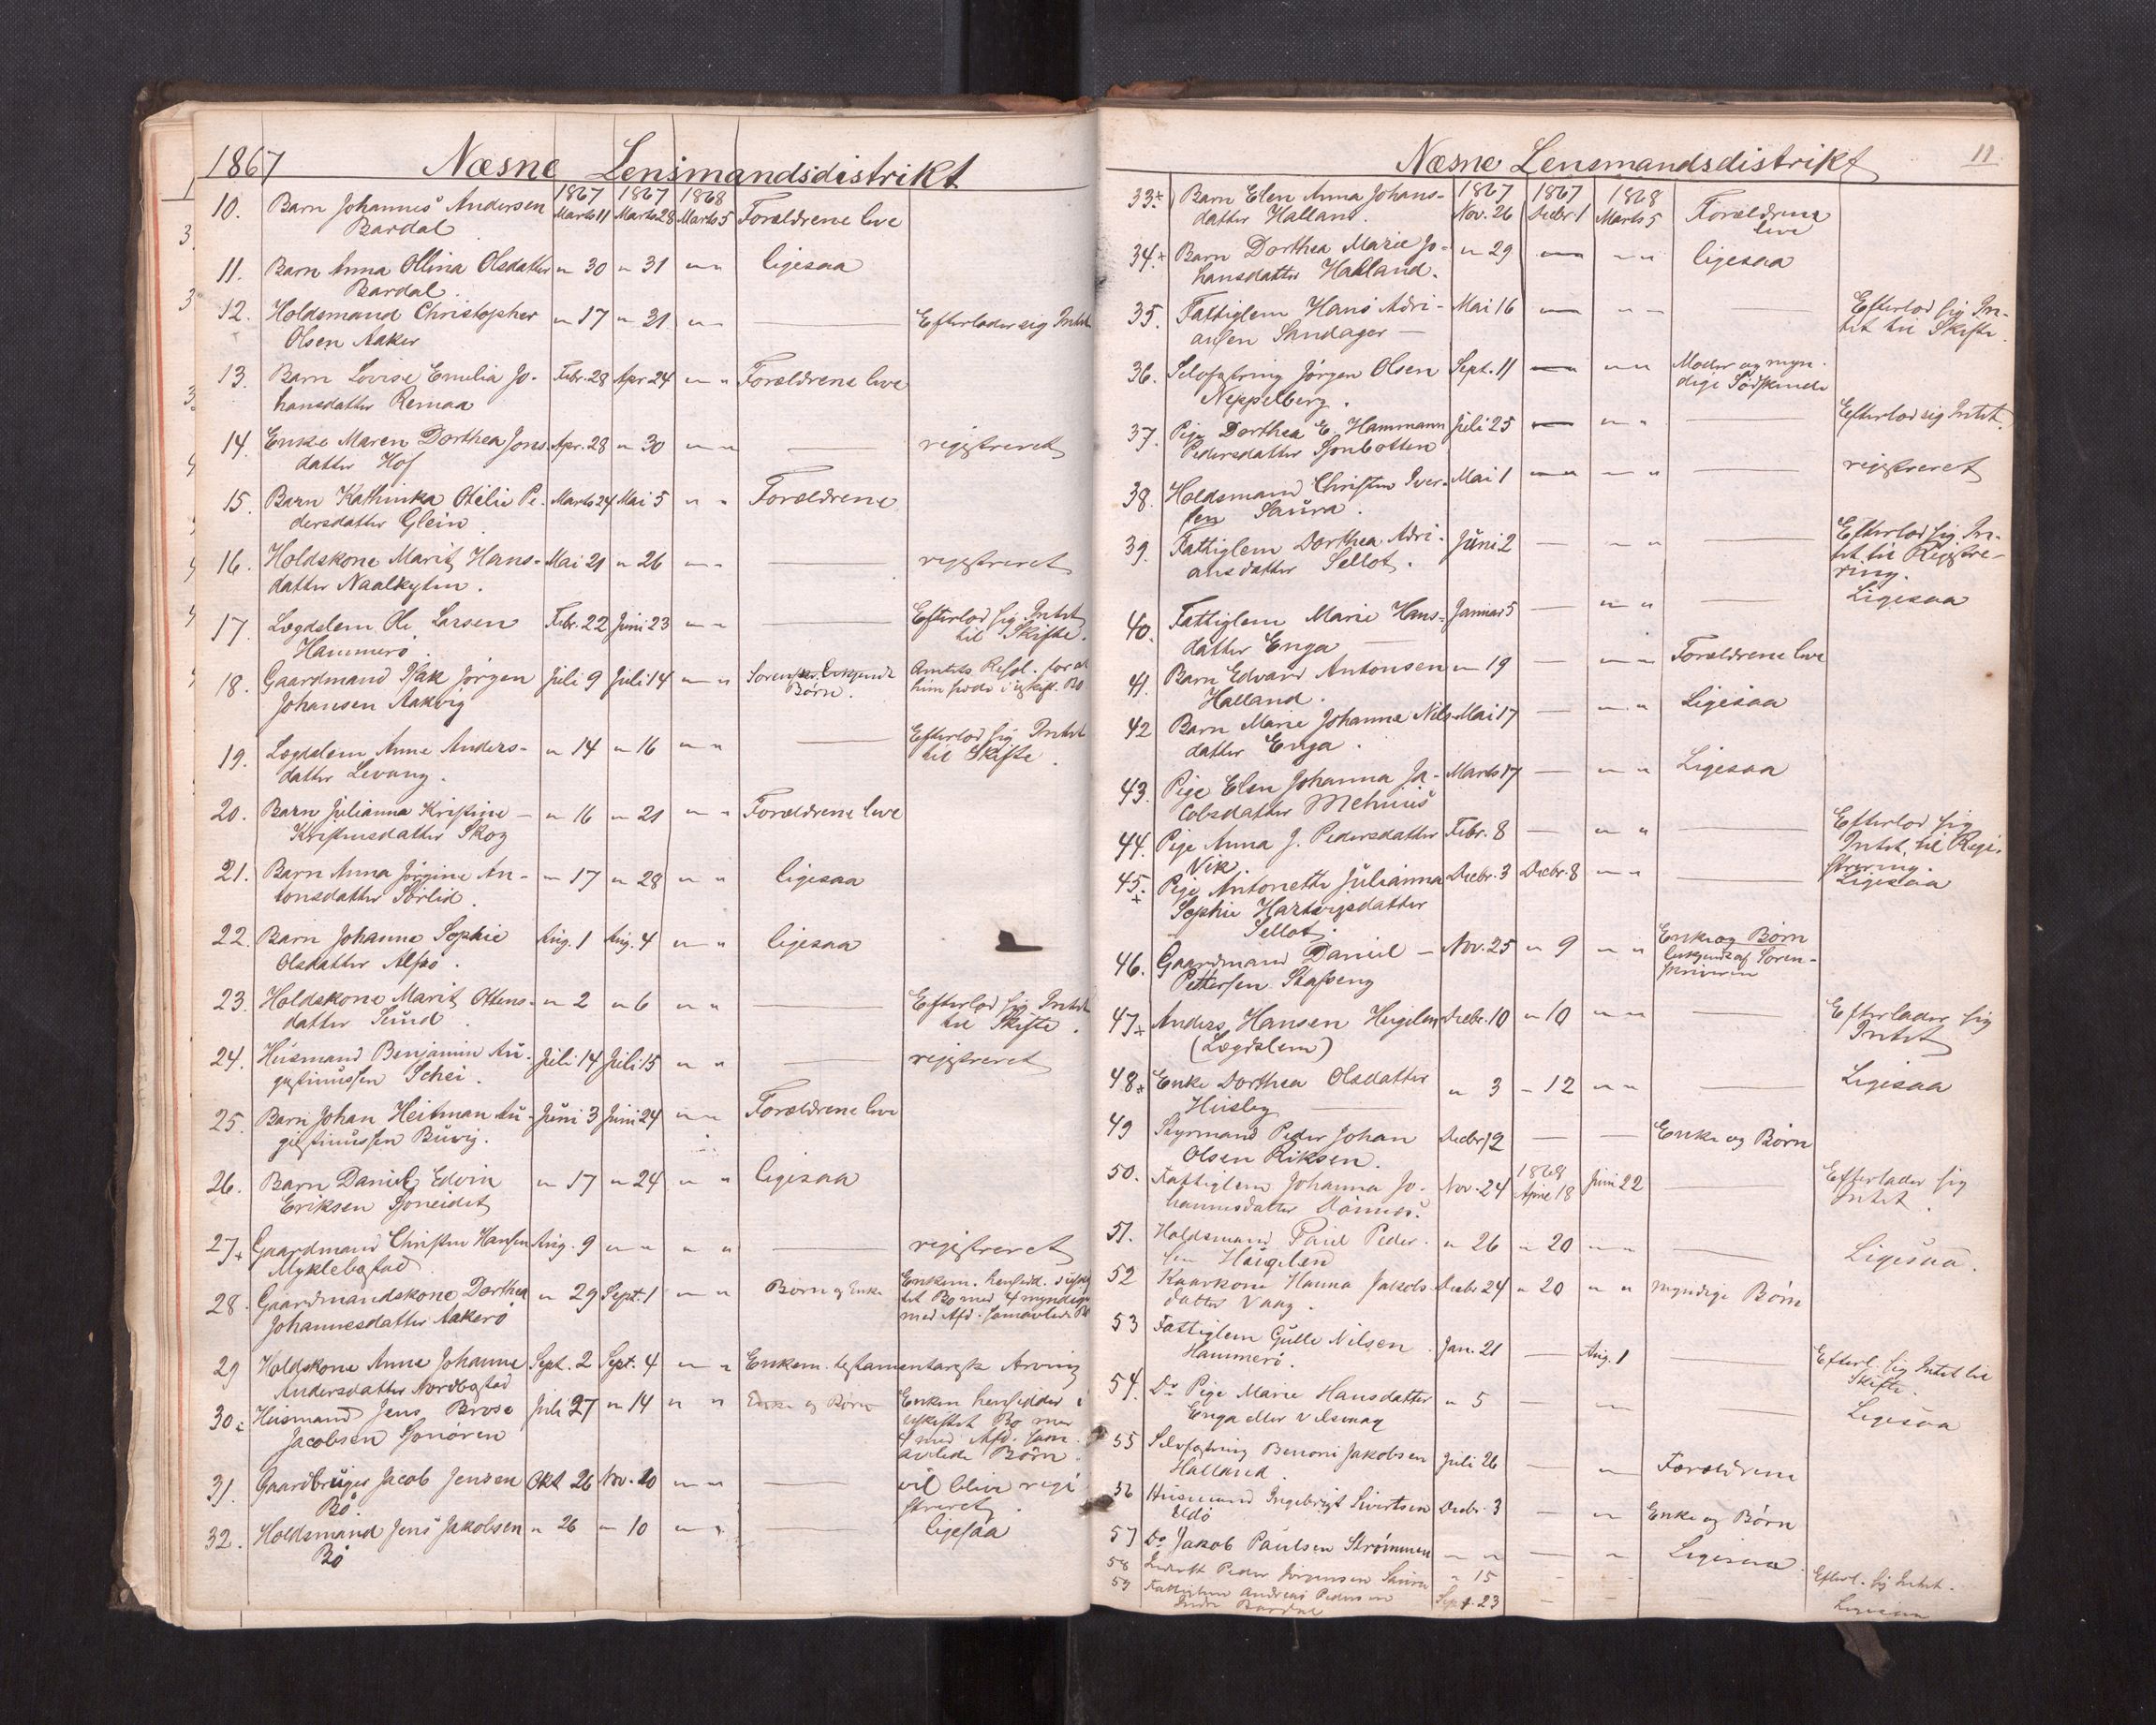 1867 Næsne Lensmandsdistrikt
1867 1867 1868
10. Barn Johannes Andersen Marts 11 Marts 28 Marts 5 Forældrene leve
Bardal
11. Barn Anna Ollina Olsdatter " 30 " 31 " " ligesaa
Bardal.
12. Holdsmand Christopher " 17 " 31 " " — Efterlader sig Intet
Olsen Aaker
13. Barn Lovise Emilia Jo- Febr. 28 Apr 24 " " Forældrene leve
hansdatter Remaa
14. Enke Maren Dorthea Jons Apr. 28 " 30 " " — registreret
datter Hof
15. Barn Kathinka Otilie Pe- Marts 24 Mai 5 " " Forældrene
dersdatter Glein
16. Holdskone Marit Hans- Mai 21 " 26 " " — registreret
datter Naalkyten.
17. Lægdslem Ole Larsen Febr. 22 Juni 23 " " — Efterlod sig Intet
Hammerø. til Skifte.
18. Gaardmand Isak Jørgen Juli 9 Juli 14 " "
Johansen Aakvig Børn.
19. Lægdslem Anne Anders- " 14 " 16 " " — Efterlod sig Intet
datter Levang. til Skifte.
20. Barn Julianna Kristine " 16 " 21 " " Forældrene leve
Skog
21. Barn Anna Jørgine An- " 17 " 28 " " ligesaa
tonsdatter Sørlid.
22. Barn Johanna Sophie Aug. 1 Aug. 4 " " ligesaa
Olsdatter Alsø.
23. Holdskone Marit Ottens- " 2 " 6 " " — Efterlod sig Intet
datter Sund. til Skifte.
24. Husmand Benjamin Au- Juli 14 Juli 15 " " — registreret
gustinussen Schei.
25. Barn Johan Heitman Au- Juni 3 Juni 24 " " Forældrene leve
gustinussen Buvig.
26. Barn Daniel Edvin " 17 " 24 " " ligesaa
Eriksen Sjoneidet
27+ Gaardmand Christen Hansen Aug. 9 " " " " — registreret
Myklebostad
28. Gaardmandskone Dorthea " 29 Sept. 1 " " Børn og Enke
Johannesdatter Aakerø
29 Holdskone Anne Johanne Sept. 2 Sept. 4 " " Enkem. testamentariske Arving
Andersdatter Nordbostad
30. Husmand Jens Brose Juli 27 " 14 " " Enke og Børn Enken hensidder i
Jacobsen Sjonøren uskiftet Bo med
4 med Afd. sam-
avlede Børn.
31. Gaardbruger Jacob Jensen Okt 26 Nov. 10 " " — vil blive regi
Bø. streret.
32. Holdsmand Jens Jakobsen " 26 " 10 " " — ligesaa
Bø
Næsne Lensmandsdistrikt 11
1867 1867 1868
33+ Barn Elen Anna Johans- Nov. 26 Decbr 1 Marts 5 Forældrene
datter Halland. leve
34.+ Barn Dorthea Marie Jo- " 29 — " " ligesaa
hansdatter Halland.
35. Fattiglem Hans Adri- Mai 16 — " " — Efterlod sig In-
ansen Sandager — tet til Skifte.
36. Selvfostring Jørgen Olsen Sept. 11 — " " Moder og myn-
Neppelberg. dige Sødskende
37. Pige Dorthea E. Hammann Juli 25 — " " — Efterlod sig Intet.
Pedersdatter Sjonbotten
38. Holdsmand Christen Iver- Mai 1 — " " — registreret
sen Saura.
39. Fattiglem Dorthea Adri- Juni 2 — " " — Efterlod sig In-
ansdatter Sellot. tet til Registre-
ring.
40. Fattiglem Marie Hans- Januar 5 — " " — Ligesaa
datter Enga —
41. Barn Edvard Antonsen " 19 — " " Forældrene leve
Halland.
42 Barn Marie Johanna Nils- Mai 17 — " " Ligesaa
datter Enga.
43. Pige Elen Johanna Ja- Marts 17 — " " Ligesaa
cobsdatter Mehuus
44. Pige Anna J. Pedersdatter Febr. 8 — " " — Efterlod sig
Vik. Intet til Regi-
strering.
45.+ Pige Antonette Julianna Decbr. 3 Decbr. 8 " " — Ligesaa
Sophie Hartvigsdatter
Sellot.
46. Gaardmand Daniel — Nov. 25 " 9 " " Enke og Børn
Pettersen Stapseng
47+ Anders Hansen Heigelen Decbr. 10 " 10 " " — Efterlader sig
(Lægdslem) Intet
48+ Enke Dorthea Olsdatter " 3 " 12 " " — Ligesaa
Husby —
49 Styrmand Peder Johan Decbr 12 — — Enke og Børn
Olsen Riksen.
50. Fattiglem Johanna Jo- Nov. 24 1868 April 18 Juni 22 Efterlader sig
hannesdatter Dønnes. Intet.
51. Holdsmand Paul Peder- " 26 " 20 " " — Ligesaa.
sen Heigelen
52 Kaarkone Hanna Jakobs- Decbr 24 " 20 " " myndige Børn
datter Vaag.
53 Fattiglem Gulle Nilsen Jan. 21 — Aug. 1 — Efterl. sig Intet til
Hammerø. Skifte.
54. Do Pige Marie Hansdatter " 5 — " — Ligesaa
Enga eller
55 Selvfostring Benoni Jakobsen Juli 26 — " Forældrene
Halland.
56 Husmand Ingebrigt Sivertsen Decbr. 3 — " Enke og Børn
57 Do Jakob Paulsen Strømmen " " — " Ligesaa
58 Peder Jørgensen Saura " 15 - - Efterl. sig Intet.
59 Fattiglem Andreas Pedersen Sept. 23 - - - Ligesaa
Indre Bardal